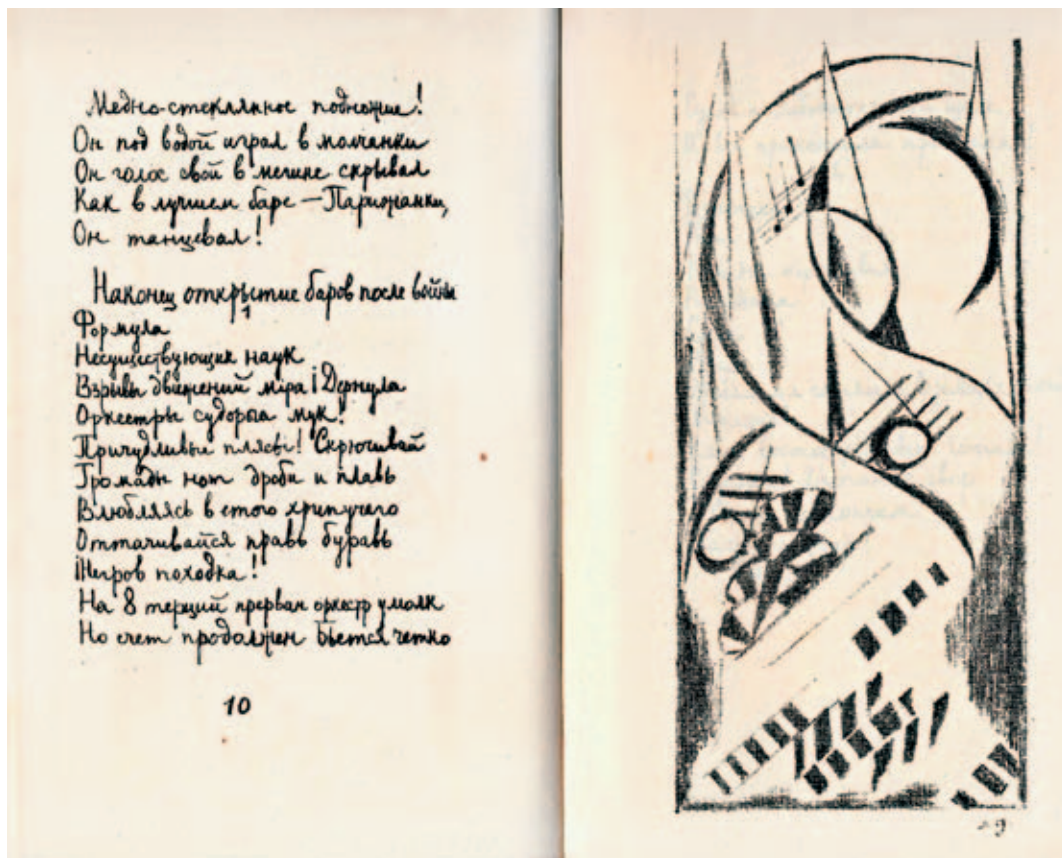 Медно-стеклянное подножие!
Он под водой играл в молчанки
Он голос свой в мешке скрывал
Как в лучшем баре — Парижанки,
Он танцевал!
Наконец открытие баров после войны
1
Формула
Несуществующих наук
Взрывы движений міра і Дернула
Оркестры судорга мук!
Причудливые плясы! Скрючивай
Громады нот дроби и плавь
Влюбляясь в етого хрипучего
Оттачивайся правь буравь
Негров походка!
На 8 терций прерван оркестр умолк
Но счет продолжен Бьется четко
10